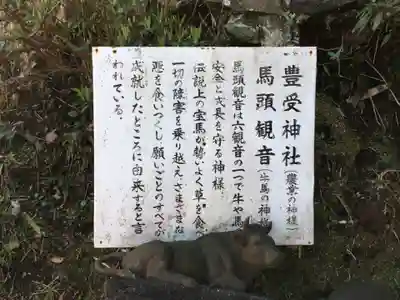 豊受神社(農業の神様)
馬頭観音(牛馬の神様
馬頭観音は六観音の一つで牛や馬
安全と成長を守る神様
伝説上の宝馬が勢いよく草を食べ
一切の障害を乗り越え、さまざまな
悪を食いつくし願いごとのすべてが
成就したところに由来すると言
われている。